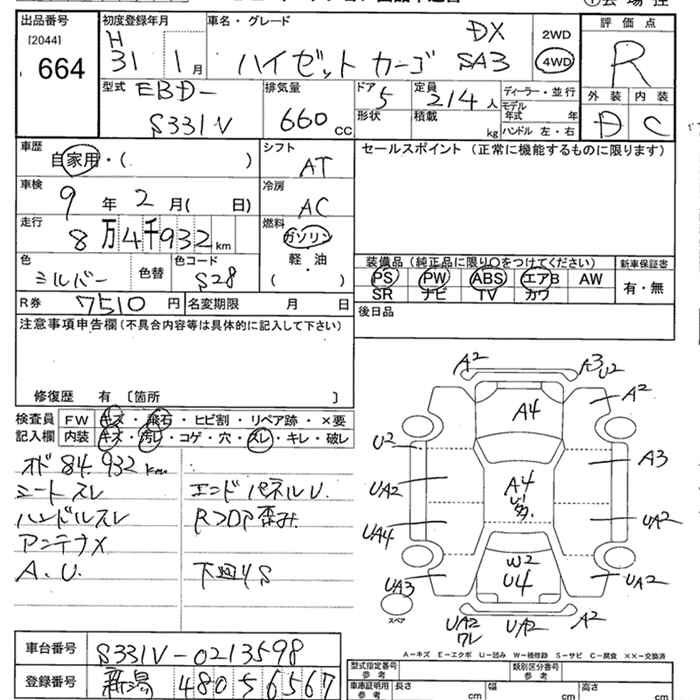 出品番号
[2044]
664
初度登録年月
H
31 1月
車名・グレード
DX
ハイゼットカーゴ SA3
2WD
4WD
評価点
R
外装 内装
D C
型式
EBD-
S331V
排気量
660 cc
ドア
5
形状
定員
2/4人
積載
kg
ディーラー・並行
モデル
年式 年
ハンドル 左・右
車歴
自家用・( )
シフト
AT
セールスポイント (正常に機能するものに限ります)
車検
9年 2月( 日)
冷房
AC
走行
8万4千932km
燃料
ガソリン
軽・油
( )
色
シルバー
色替
色コード
S28
装備品 (純正品に限り○をつけてください)
PS PW ABS エアB AW
SR ナビ TV カワ
新車保証書
有・無
R券 7510円
名変期限 月 日
後日品
注意事項申告欄 (不具合内容等は具体的に記入して下さい)
修復歴 有 〔箇所 〕
検査員
記入欄
FW キズ・飛石・ヒビ割・リペア跡・×要
内装 キズ・汚レ・コゲ・穴・スレ・キレ・破レ
オド 84.932km
シートスレ
ハンドルスレ
アンテナX
A.U.
エンドパネルU.
Rフロア歪み.
下廻りS
A2
A3
U2
A2
A4
U2
A3
UA2
A4
U
多.
UA4
UA2
W2
U4
UA3
UA2
スペア
UA2
ワレ
UA2
A2
A－キズ E－エクボ U－凹み W－補修跡 S－サビ C－腐食 ××－交換済
車台番号
S331V-0213598
登録番号
新潟 480 う 6567
型式指定番号
参考
類別区分番号
参考
車庫証明用
参考
長さ cm
幅 cm
高さ cm